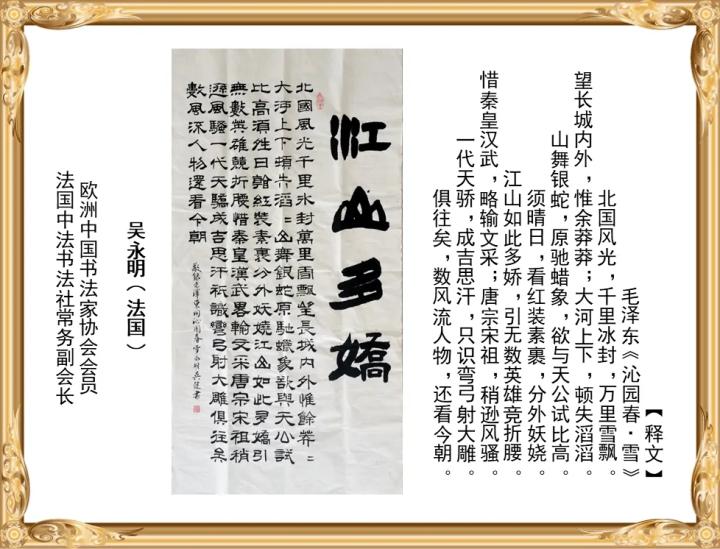 【释文】
毛泽东《沁园春·雪》
北国风光，千里冰封，万里雪飘。
望长城内外，惟余莽莽；大河上下，顿失滔滔。
山舞银蛇，原驰蜡象，欲与天公试比高。
须晴日，看红装素裹，分外妖娆。
江山如此多娇，引无数英雄竞折腰。
惜秦皇汉武，略输文采；唐宗宋祖，稍逊风骚。
一代天骄，成吉思汗，只识弯弓射大雕。
俱往矣，数风流人物，还看今朝。
江山多嬌
北國風光千里冰封萬里雪飄望長城内外惟餘莽〻
大河上下頓失滔〻山舞銀蛇原馳蠟象欲與天公試
比高須晴日看紅裝素裹分外妖嬈江山如此多嬌引
無數英雄競折腰惜秦皇漢武畧輸文采唐宗宋祖稍
遜風騷一代天驕成吉思汗祇識彎弓射大雕俱往矣
數風流人物還看今朝
吴永明（法国）
欧洲中国书法家协会会员
法国中法书法社常务副会长